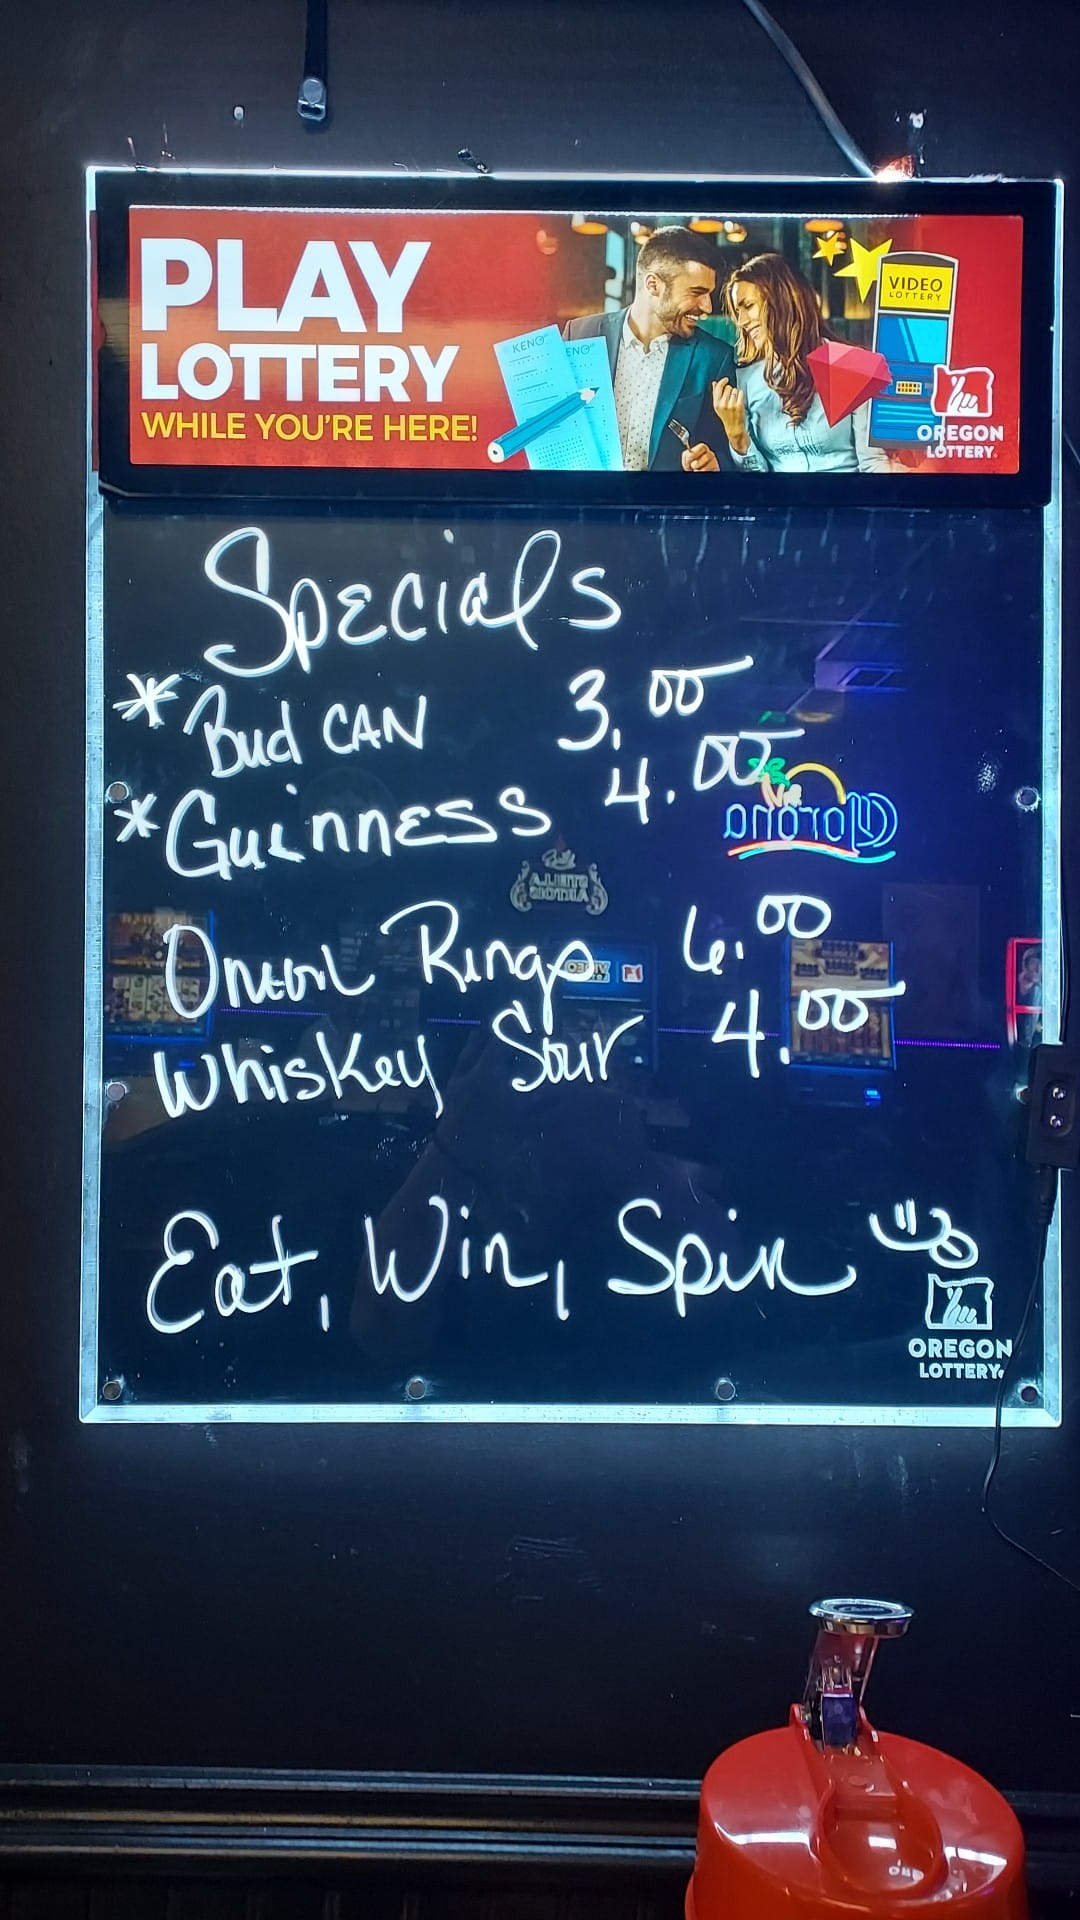 PLAY
LOTTERY
WHILE YOU'RE HERE!
KENO
KENO
VIDEO
LOTTERY
OREGON
LOTTERY
Specials
* Bud CAN 3.00
* Guinness 4.00
Corona
STELLA
ARTOIS
Onion Rings 6.00
VIDEO
Whiskey Sour 4.00
Eat, Win, Spin
OREGON
LOTTERY